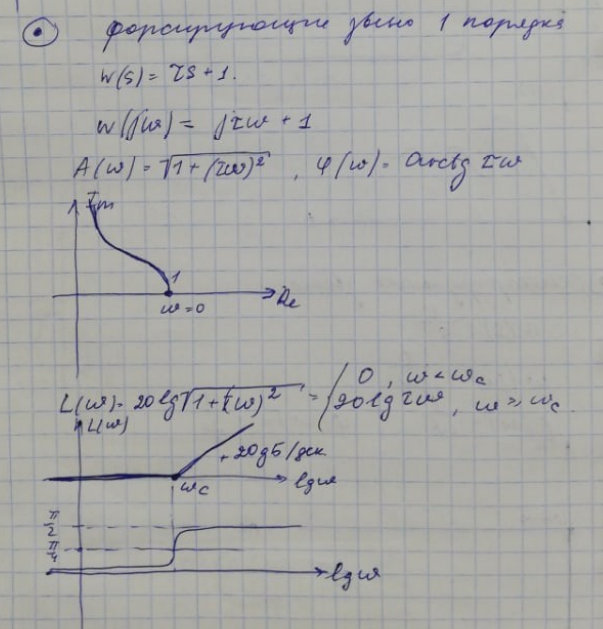 форсирующие звено 1 порядка
W(s) = τs + 1.
W(jω) = jτω + 1
A(ω) = √1+(τω)² , φ(ω) = arctg τω
Im
1
ω=0
Re
L(ω) = 20lg√1+(τω)² = { 0, ω < ωc
20lg τω, ω > ωc.
L(ω)
+20дБ/дек
ωc
lgω
π/2
π/4
lgω